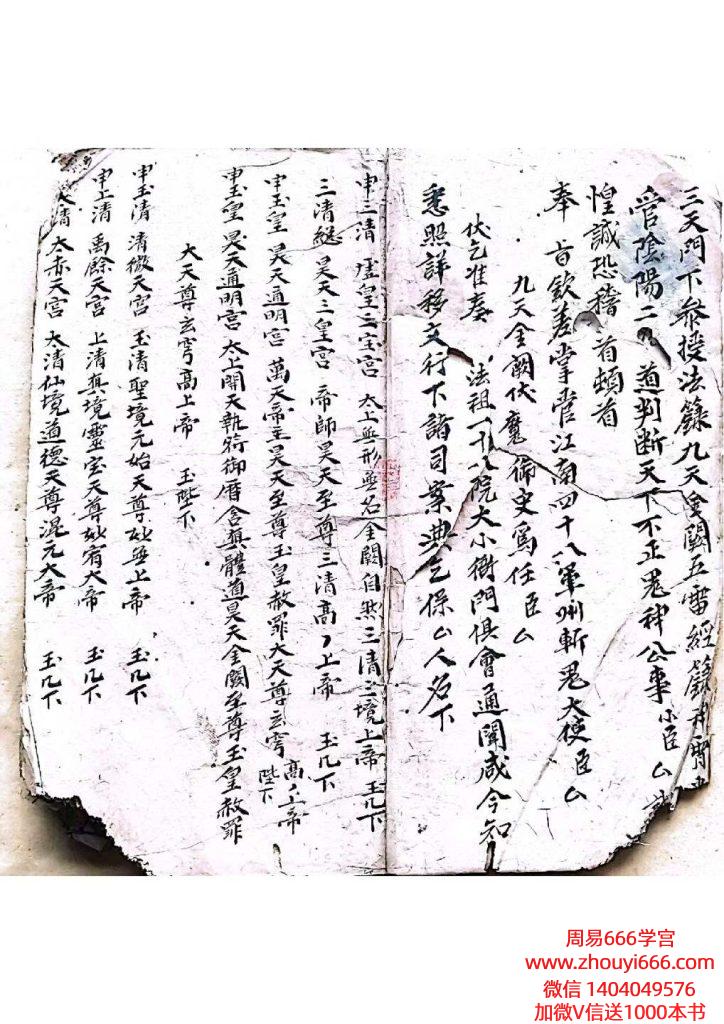 三天門下叅授法籙九天金闕五雷經籙
管陰陽二 道判断天下不正鬼神公事 小臣厶
惶誠恐稽首頓首
奉 旨欽差掌管江南四十八軍州斬鬼大使臣厶
九天金闕伏魔 史寫任臣厶
伏乞准奏 法祖一 院大小衙門俱會通聞咸令知
悉照詳移文行下諸司案典乞保厶人名下
申三清 虛皇三宝宮 太上無形無名金闕自然三清三境上帝 玉几下
三清總 昊天三皇宮 帝師昊天至尊三清高〃上帝 玉几下
申玉皇 昊天通明宮 萬天帝主昊天至尊玉皇赦罪大天尊玄穹高〃上帝 陛下
申玉皇 昊天通明宮 太上開天執符御曆含真體道昊天金闕至尊玉皇赦罪
大天尊玄穹高上帝 玉陛下
申玉清 清微天宮 玉清聖境元始天尊妙無上帝 玉几下
申上清 禹餘天宮 上清真境靈宝天尊妙有大帝 玉几下
太清 太赤天宮 太清仙境道德天尊混元大帝 玉几下
周易666学宫
www.zhouyi666.com
微信 1404049576
加微V信送1000本书